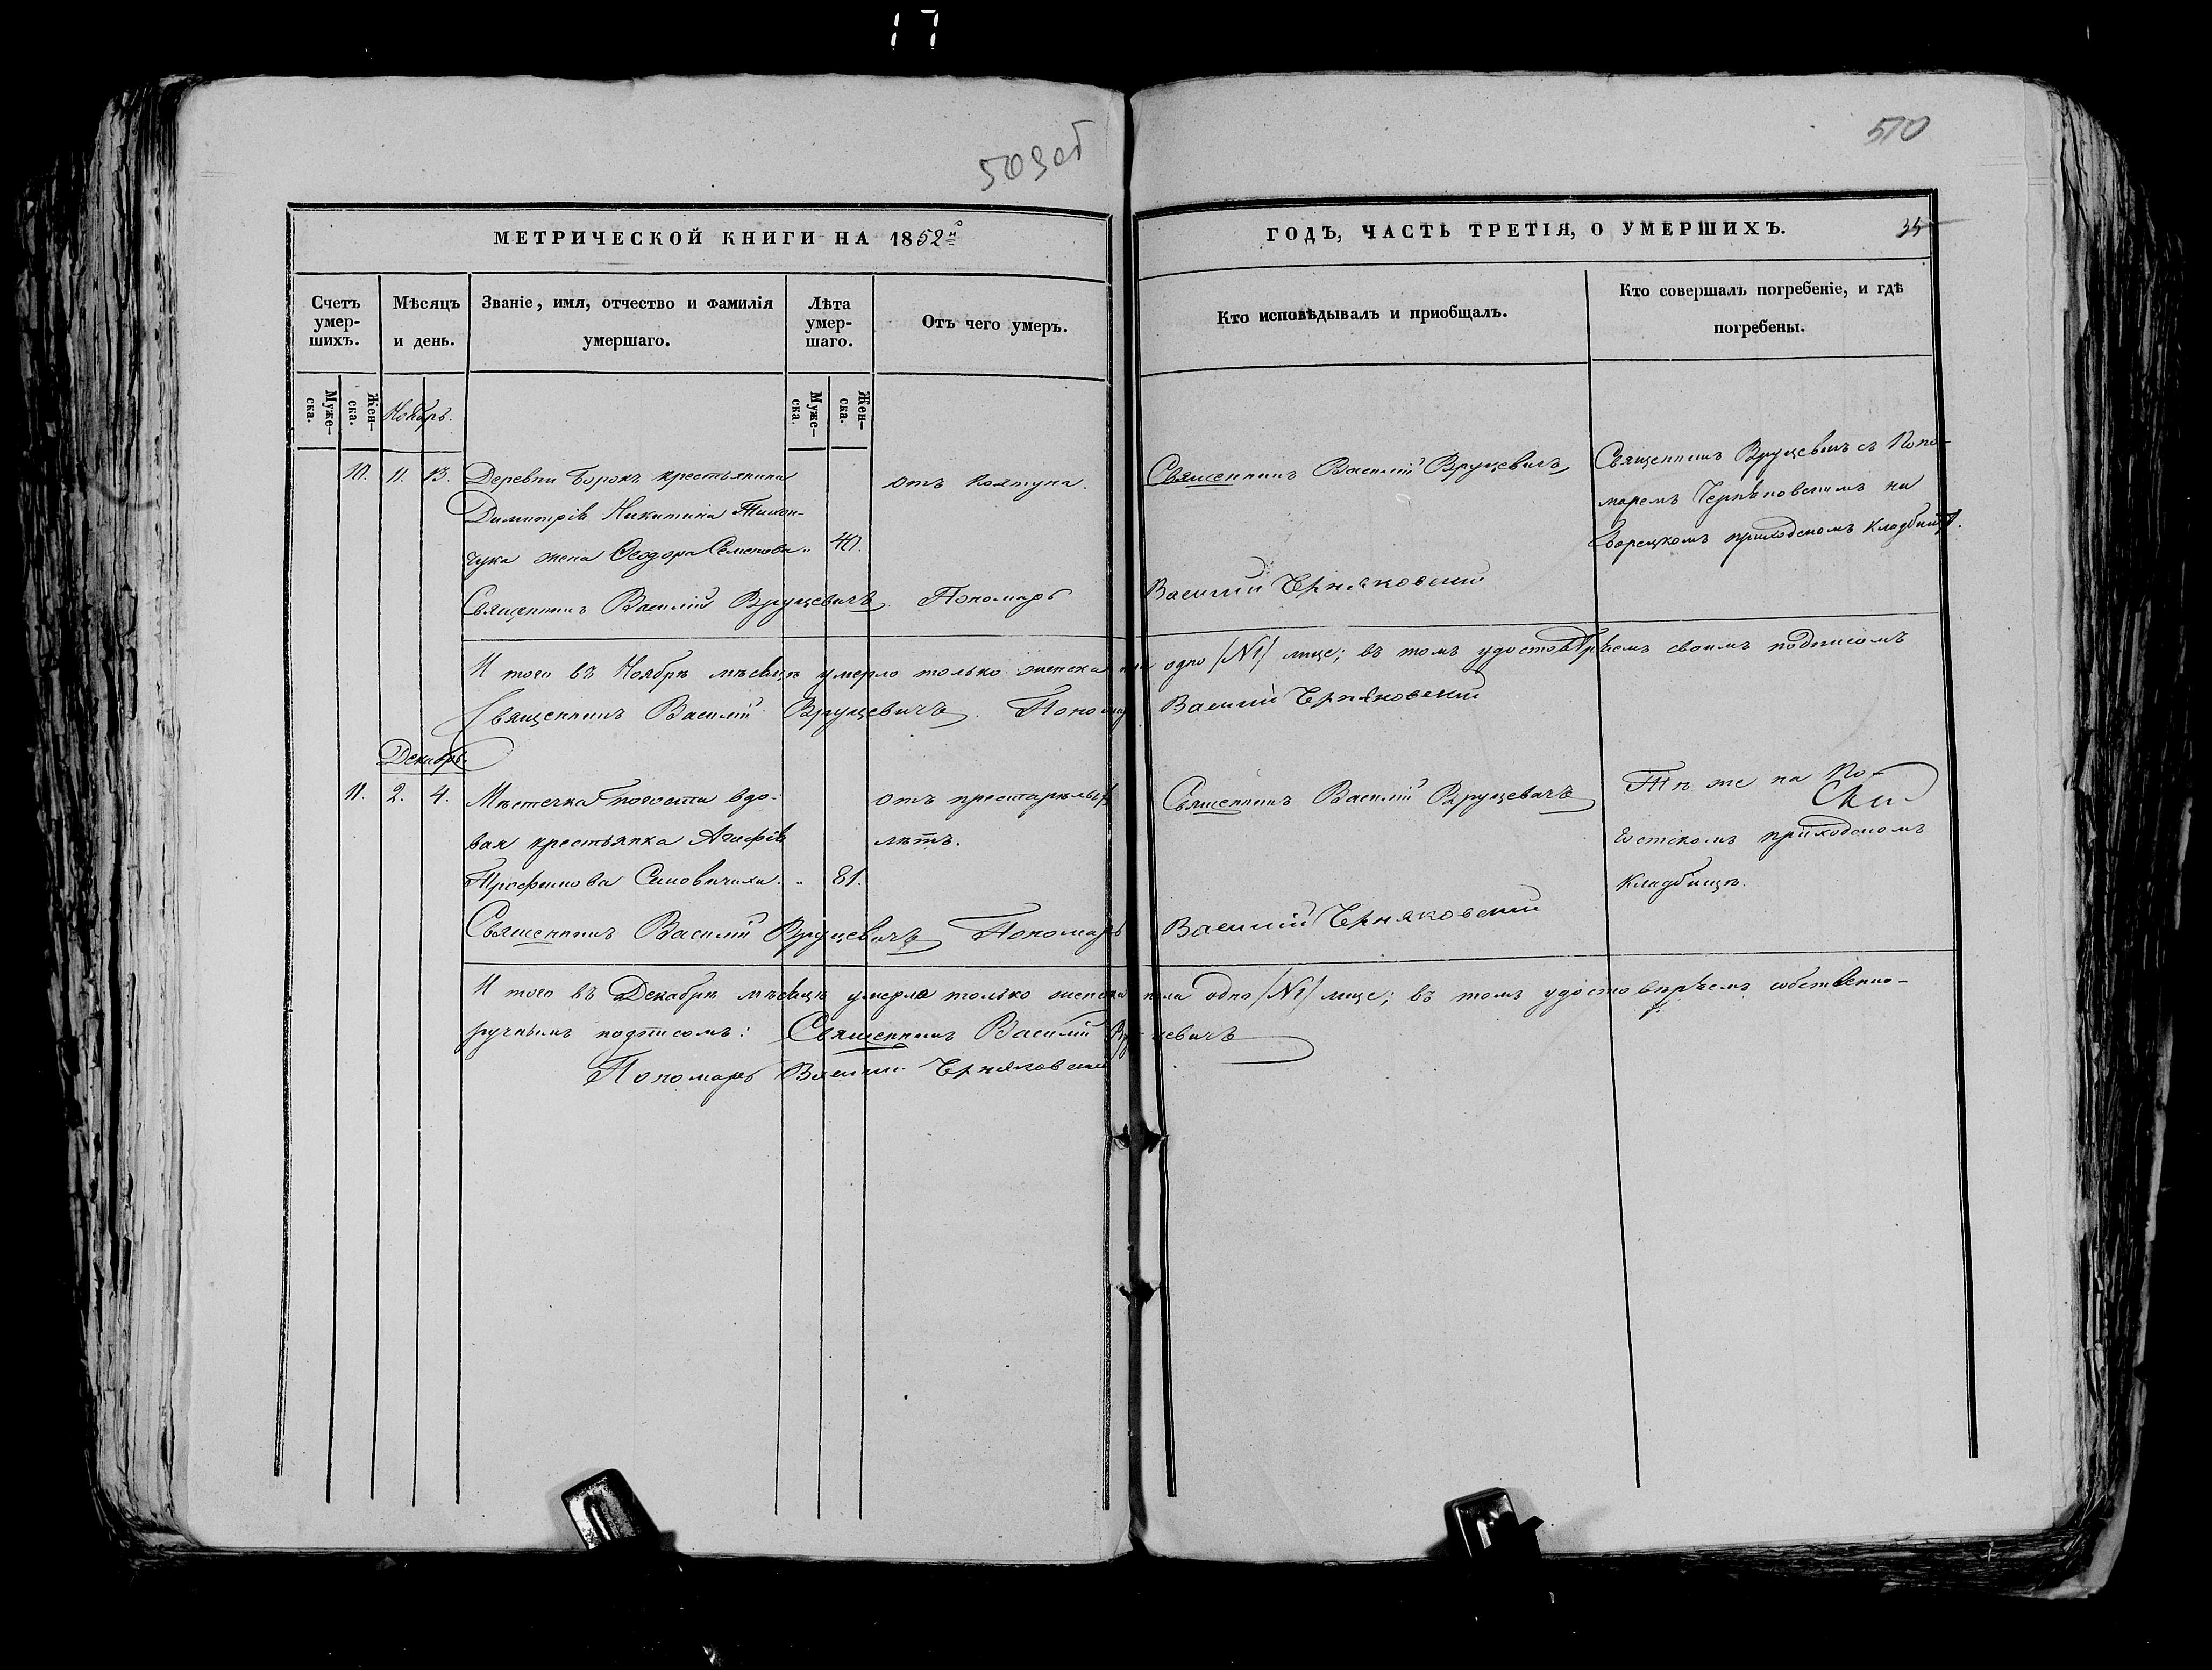 17
509об
510
МЕТРИЧЕСКОЙ КНИГИ НА 1852й
ГОДЪ, ЧАСТЬ ТРЕТІЯ, О УМЕРШИХЪ.
35
Счетъ умер-шихъ.
Мѣсяцъ и день.
Званіе, имя, отчество и фамилія умершаго.
Лѣта умер-шаго.
Отъ чего умеръ.
Кто исповѣдывалъ и приобщалъ.
Кто совершалъ погребеніе, и гдѣ погребены.
Муже-ска.
Жен-ска.
Ноябрь.
Муже-ска.
Жен-ска.
10. 11. 13. Деревни Борокъ крестьянина
Димитрія Никитина Тихон-
чука жена Ѳеодора Семенова „ 40.
отъ колтуна.
Священникъ Василій Вруцевичъ
Священникъ Вруцевичъ съ Поно-
маремъ Черняковскимъ на
приходскомъ кладбищѣ.
Священникъ Василій Вруцевичъ. Пономарь Василий Черняковский
И того въ Ноябрѣ мѣсяцѣ умерло только женска пола одно /№1/ лице; въ томъ удостовѣряемъ своимъ подписомъ
Священникъ Василій Вруцевичъ. Пономарь Василий Черняковский
Декабрь.
11. 2. 4. Мѣстечка Погоста вдо-
вая крестьянка Агафія
Трофимова „ 81.
отъ престарѣлыхъ
лѣтъ.
Священникъ Василій Вруцевичъ
Тѣ же на По-
гостскомъ приходскомъ
кладбищѣ.
Священникъ Василій Вруцевичъ Пономарь Василий Черняковский
И того въ Декабрѣ мѣсяцѣ умерло только женска пола одно /№1/ лице; въ томъ удостовѣряемъ собственно-
ручнымъ подписомъ: Священникъ Василій Вруцевичъ
Пономарь Василий Черняковский